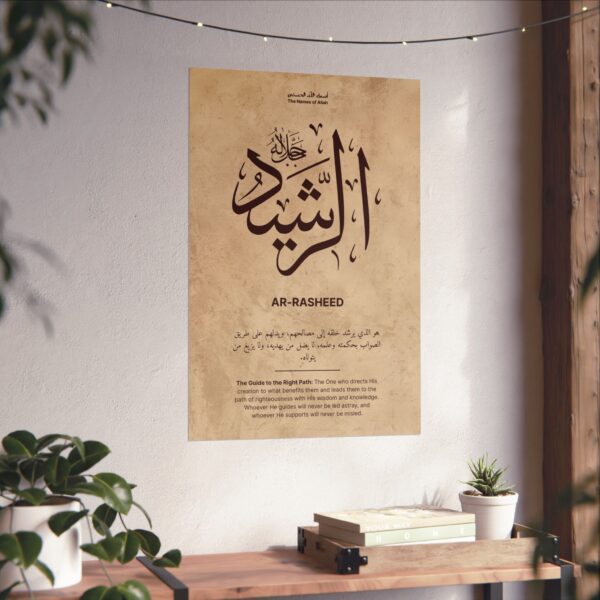 أسماء الله الحسنى
The Names of Allah
جل جلاله
الرشيد
AR-RASHEED
هو الذي يرشد خلقه إلى مصالحهم، ويدلهم على طريق
الصواب بحكمته وعلمه. لا يضل من يهديه، ولا يزيغ من
يتولاه.
The Guide to the Right Path: The One who directs His
creation to what benefits them and leads them to the
path of righteousness with His wisdom and knowledge.
Whoever He guides will never be led astray, and
whoever He supports will never be misled.
HOME